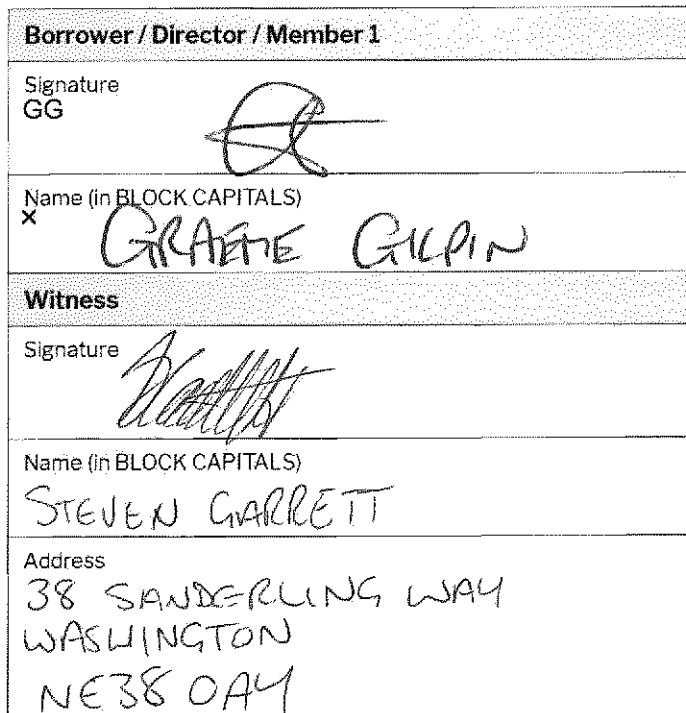 Borrower / Director / Member 1
Signature
GG
Name (in BLOCK CAPITALS)
x
GRAEME GILPIN
Witness
Signature
Name (in BLOCK CAPITALS)
STEVEN GARRETT
Address
38 SANDERLING WAY
WASHINGTON
NE38 0AY